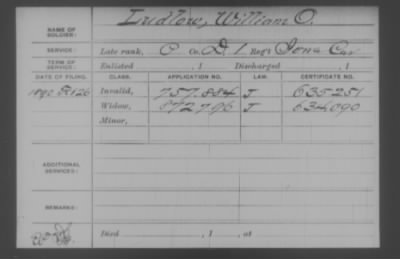 NAME OF SOLDIER: Ludlow, William O.
SERVICE: Late rank, P Co. D, 1 Reg't Iowa Cav
TERM OF SERVICE: Enlisted , 1 Discharged , 1
DATE OF FILING. CLASS. APPLICATION NO. LAW. CERTIFICATE NO.
1890 26 Invalid, 757.884 J 635251
Widow, 872.796 J 634090
Minor,
ADDITIONAL SERVICES:
REMARKS:
Died , 1 , at